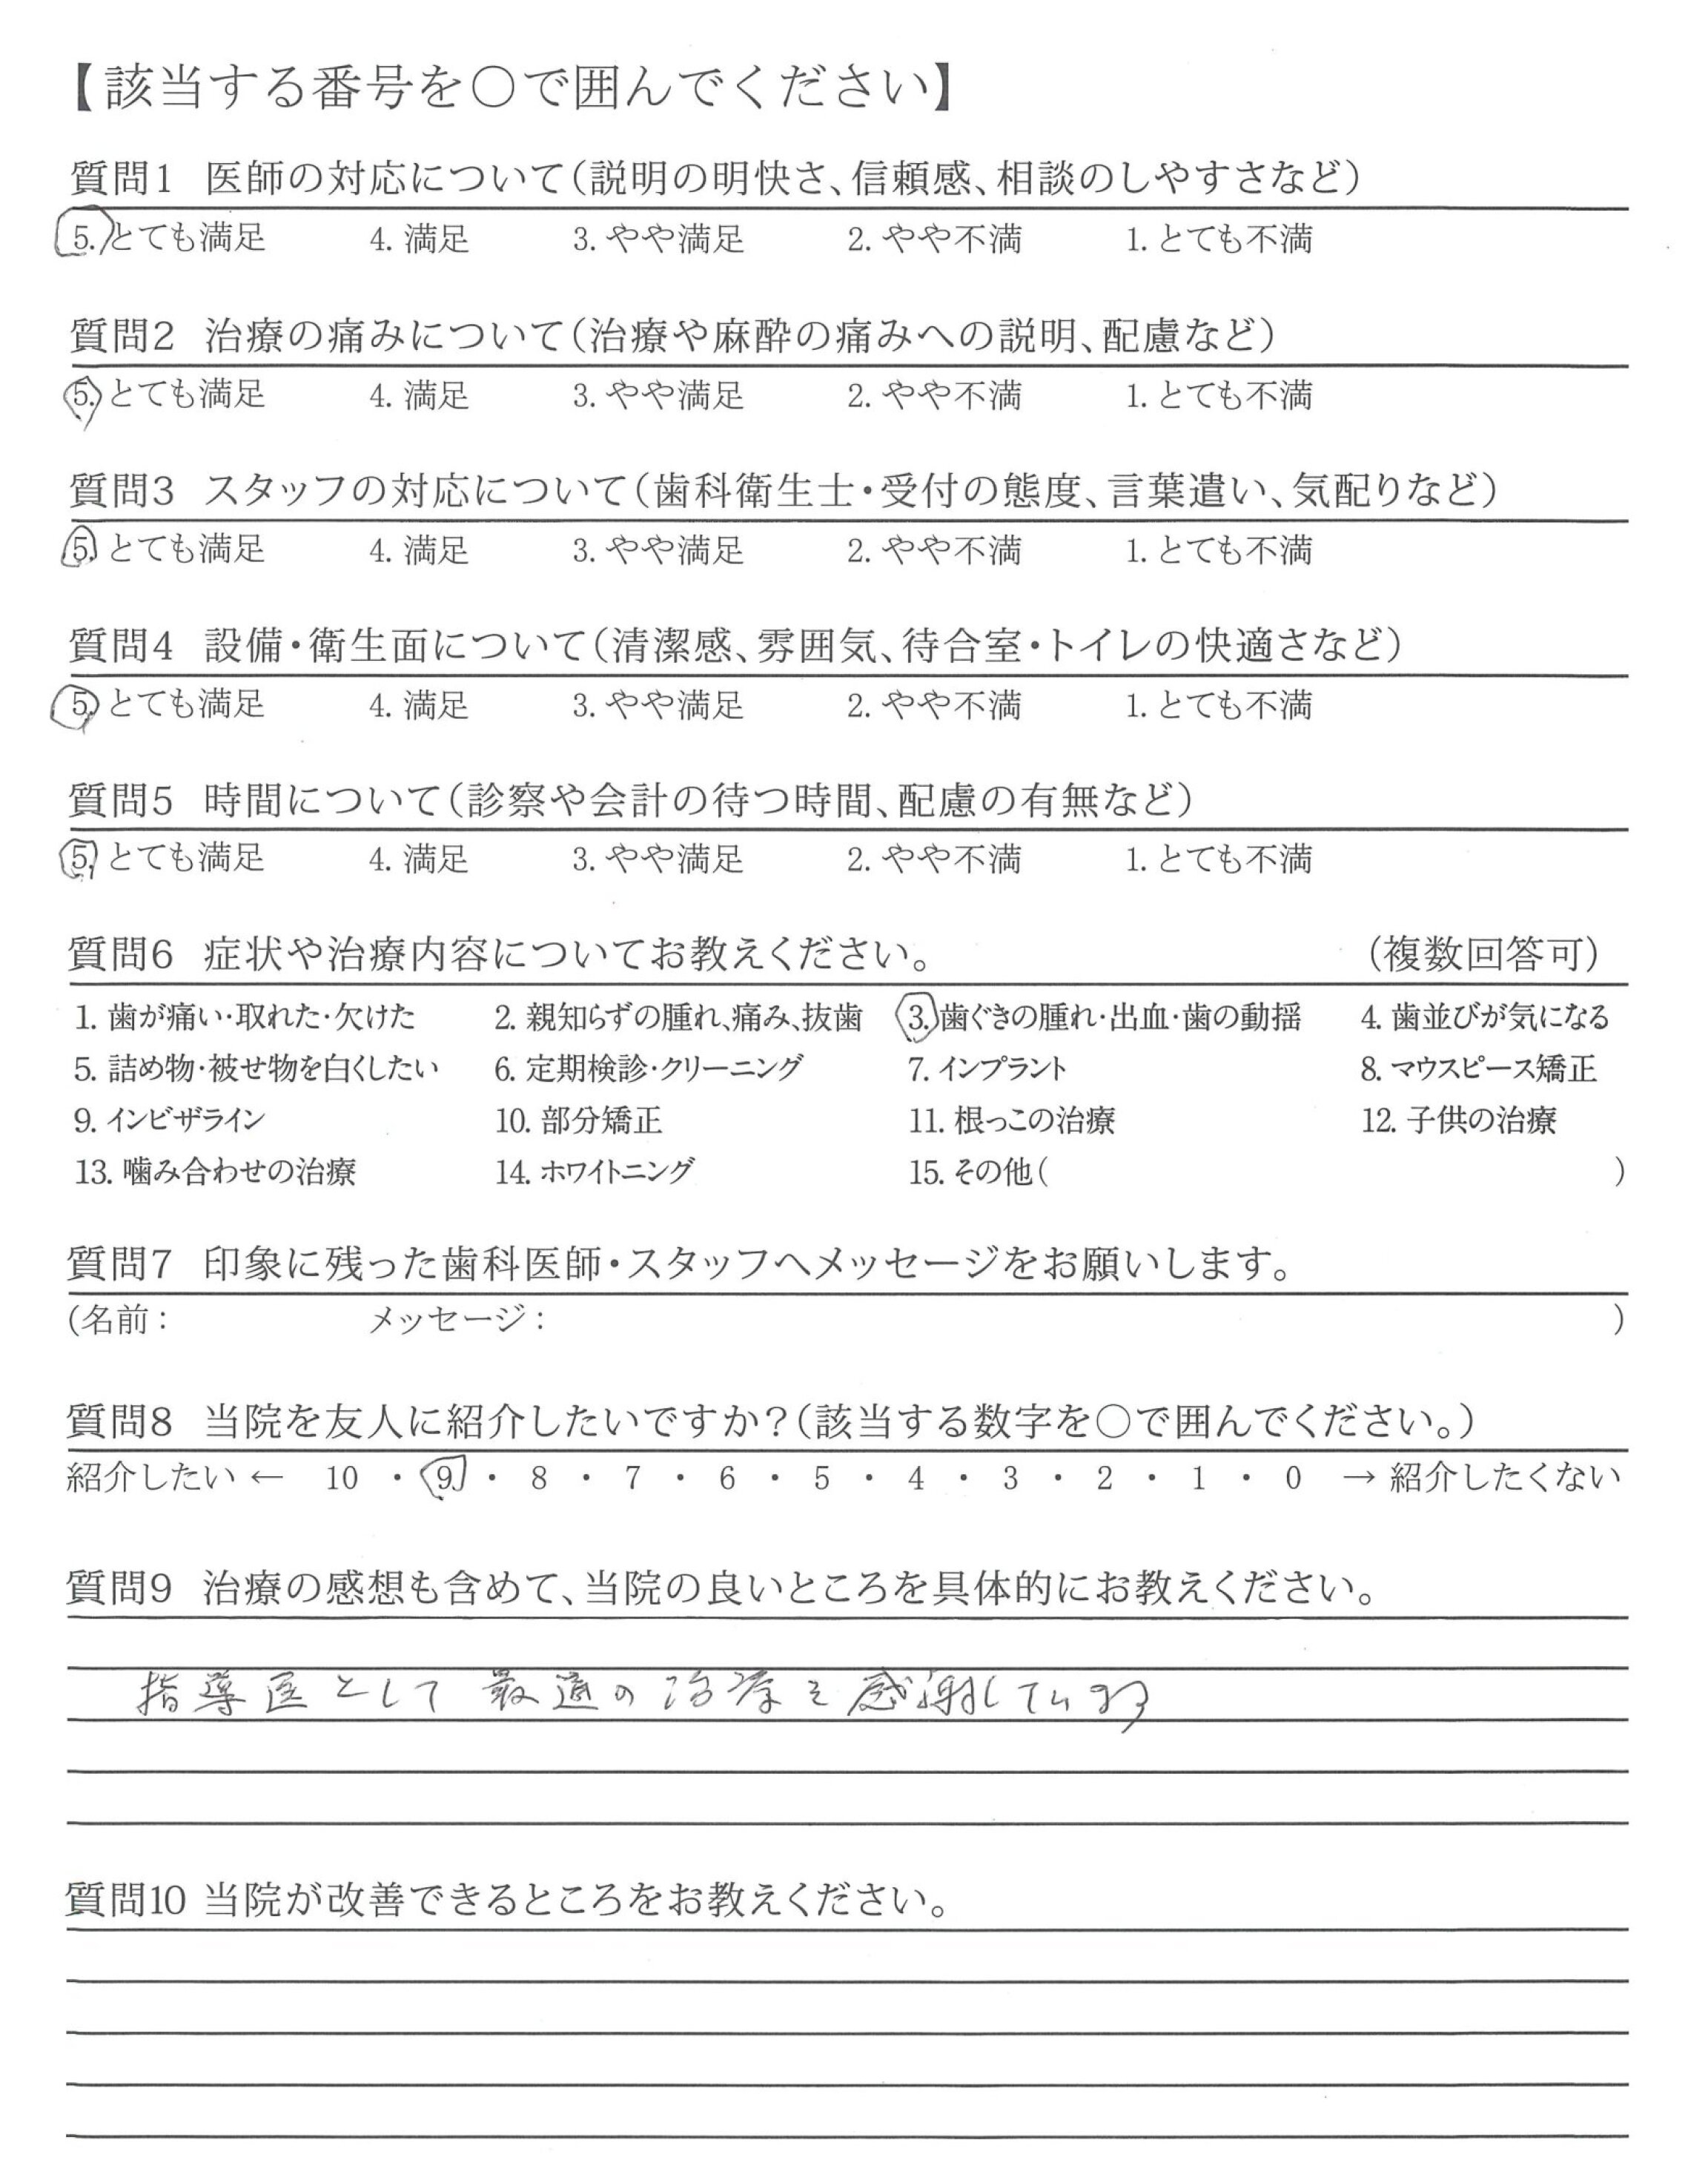 【該当する番号を○で囲んでください】
質問1 医師の対応について(説明の明快さ、信頼感、相談のしやすさなど)
5. とても満足 4. 満足 3. やや満足 2. やや不満 1. とても不満
質問2 治療の痛みについて(治療や麻酔の痛みへの説明、配慮など)
5. とても満足 4. 満足 3. やや満足 2. やや不満 1. とても不満
質問3 スタッフの対応について(歯科衛生士・受付の態度、言葉遣い、気配りなど)
5. とても満足 4. 満足 3. やや満足 2. やや不満 1. とても不満
質問4 設備・衛生面について(清潔感、雰囲気、待合室・トイレの快適さなど)
5. とても満足 4. 満足 3. やや満足 2. やや不満 1. とても不満
質問5 時間について(診察や会計の待つ時間、配慮の有無など)
5. とても満足 4. 満足 3. やや満足 2. やや不満 1. とても不満
質問6 症状や治療内容についてお教えください。 (複数回答可)
1. 歯が痛い・取れた・欠けた 2. 親知らずの腫れ、痛み、抜歯 3. 歯ぐきの腫れ・出血・歯の動揺 4. 歯並びが気になる
5. 詰め物・被せ物を白くしたい 6. 定期検診・クリーニング 7. インプラント 8. マウスピース矯正
9. インビザライン 10. 部分矯正 11. 根っこの治療 12. 子供の治療
13. 噛み合わせの治療 14. ホワイトニング 15. その他( )
質問7 印象に残った歯科医師・スタッフへメッセージをお願いします。
(名前: メッセージ: )
質問8 当院を友人に紹介したいですか?(該当する数字を○で囲んでください。)
紹介したい ← 10 ・ 9 ・ 8 ・ 7 ・ 6 ・ 5 ・ 4 ・ 3 ・ 2 ・ 1 ・ 0 → 紹介したくない
質問9 治療の感想も含めて、当院の良いところを具体的にお教えください。
指導医として最適の治療を感謝しています
質問10 当院が改善できるところをお教えください。